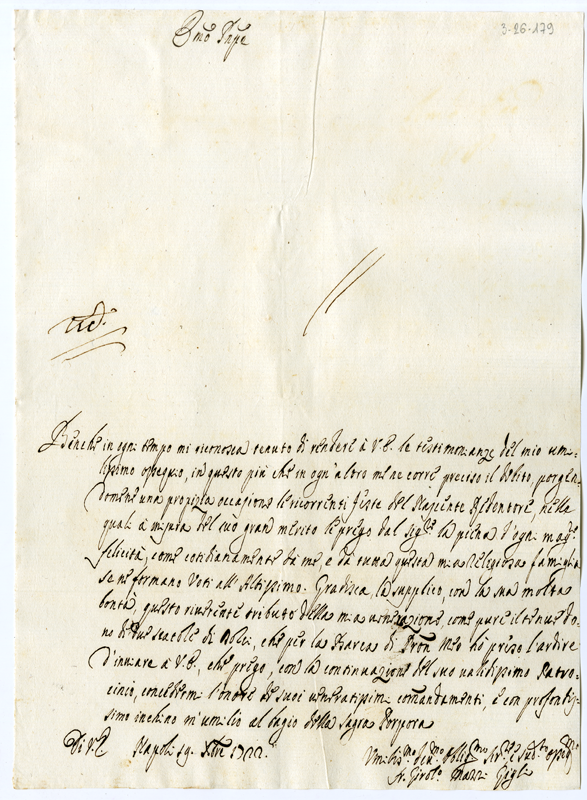 3-26-179
Emo Prpe
Benche in ogni tempo mi riconosca tenuto di rendere à V.E. le testimonianze del mio umi-
lissimo ossequio, in questo più che in ogn'altro me ne corre preciso il debito, porgen-
domene una propizia occasione le ricorrenti feste del Nascente Redentore, nelle
quali à misura del suo gran merito le prego dal Sigre la piena d'ogni magr
felicità, come cotidianamente da me, e da tutta questa mia religiosa famiglia
se ne formano Voti all'Altissimo. Gradisca, la supplico, con la sua molta
bontà, questo riverente tributo della mia venerazione, come pure il tenue do-
no di due scatole di dolci, che per la Barca di Pron Meo hò preso l'ardire
d'inviare à V.E., che prego, con la continuazione del suo validissimo Patro-
cinio, concedermi l'onore de suoi veneratissimi comandamenti, e con profondis-
simo inchino m'umilio al bagio della Sagra Porpora
Di V.E. Napoli 19. Xbre 1722.
Umilissmo devmo obligmo
Fr. Girolo